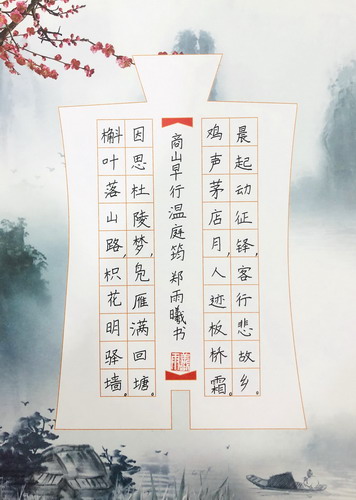 晨起动征铎,客行悲故乡。
鸡声茅店月,人迹板桥霜。
商山早行温庭筠 郑雨曦书
因思杜陵梦,凫雁满回塘。
槲叶落山路,枳花明驿墙。